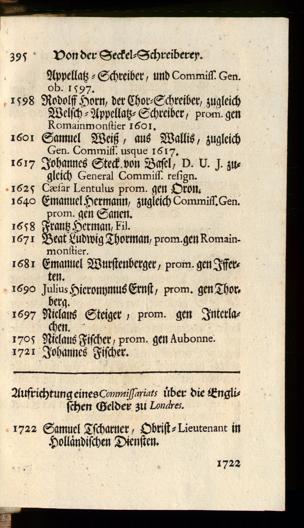 395 Von der Seckel-Schreiberey.
Appellatz-Schreiber, und Commiss. Gen.
ob. 1597.
1598 Rodolff Horn, der Chor-Schreiber, zugleich
Welsch-Appellatz-Schreiber, prom. gen
Romainmonstier 1601.
1601 Samuel Weiß, aus Wallis, zugleich
Gen. Commiss. usque 1617.
1617 Johannes Steck, von Basel, D. U. J. zu-
gleich General Commiss. resign.
1625 Cæsar Lentulus prom. gen Oron.
1640 Emanuel Hermann, zugleich Commiss. Gen.
prom. gen Sanen.
1658 Frantz Herman, Fil.
1671 Beat Ludwig Thorman, prom. gen Romain-
monstier.
1681 Emanuel Wurstenberger, prom. gen Iffer-
ten.
1690 Julius Hieronymus Ernst, prom. gen Thor-
berg.
1697 Niclaus Steiger, prom. gen Interla-
chen.
1705 Niclaus Fischer, prom. gen Aubonne.
1721 Johannes Fischer.
Aufrichtung eines Commissariats über die Engli-
schen Gelder zu Londres.
1722 Samuel Tscharner, Obrist-Lieutenant in
Holländischen Diensten.
1722